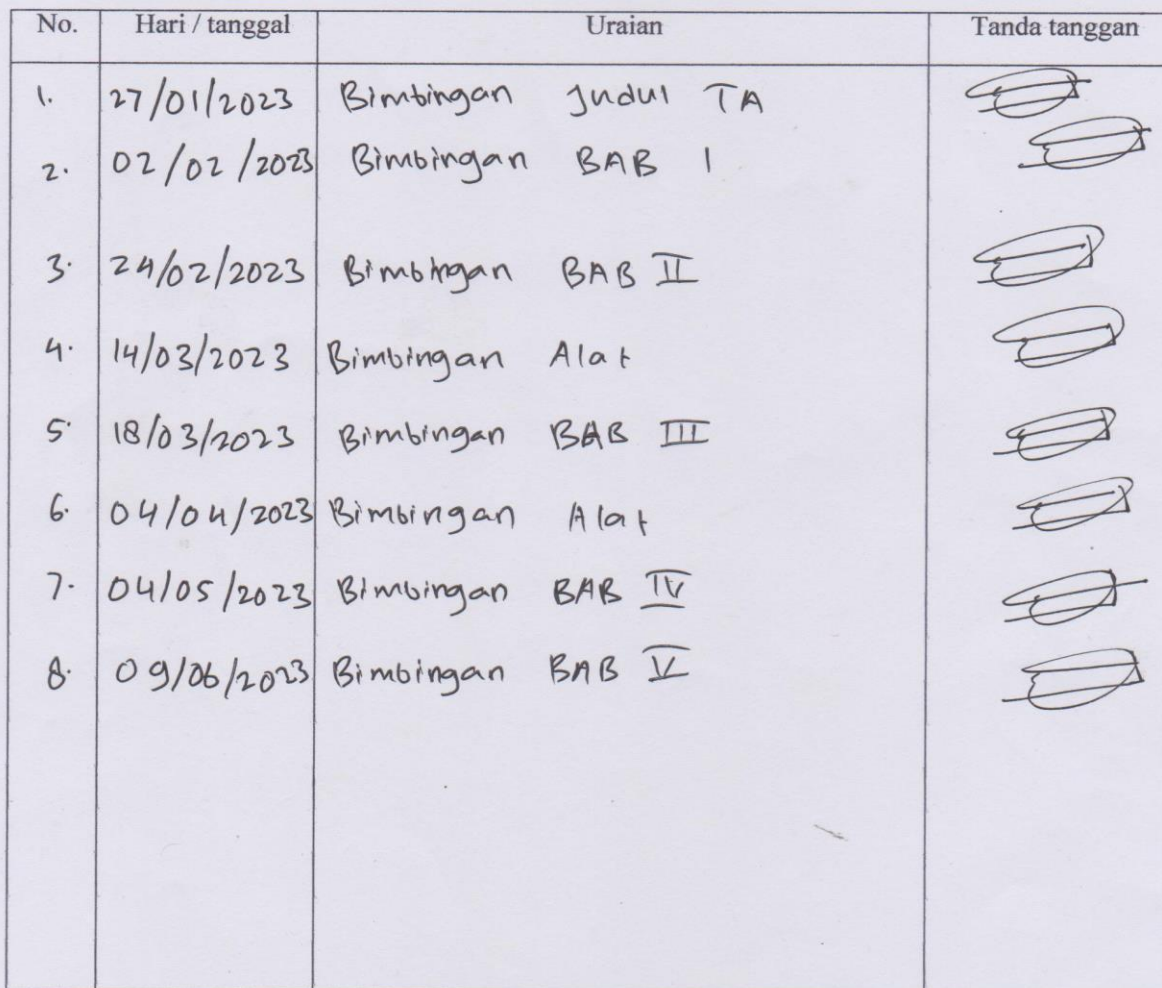 No. Hari / tanggal Uraian Tanda tanggan
1. 27/01/2023 Bimbingan Judul TA
2. 02/02/2023 Bimbingan BAB I
3. 24/02/2023 Bimbingan BAB II
4. 14/03/2023 Bimbingan Alat
5. 18/03/2023 Bimbingan BAB III
6. 04/04/2023 Bimbingan Alat
7. 04/05/2023 Bimbingan BAB IV
8. 09/06/2023 Bimbingan BAB V